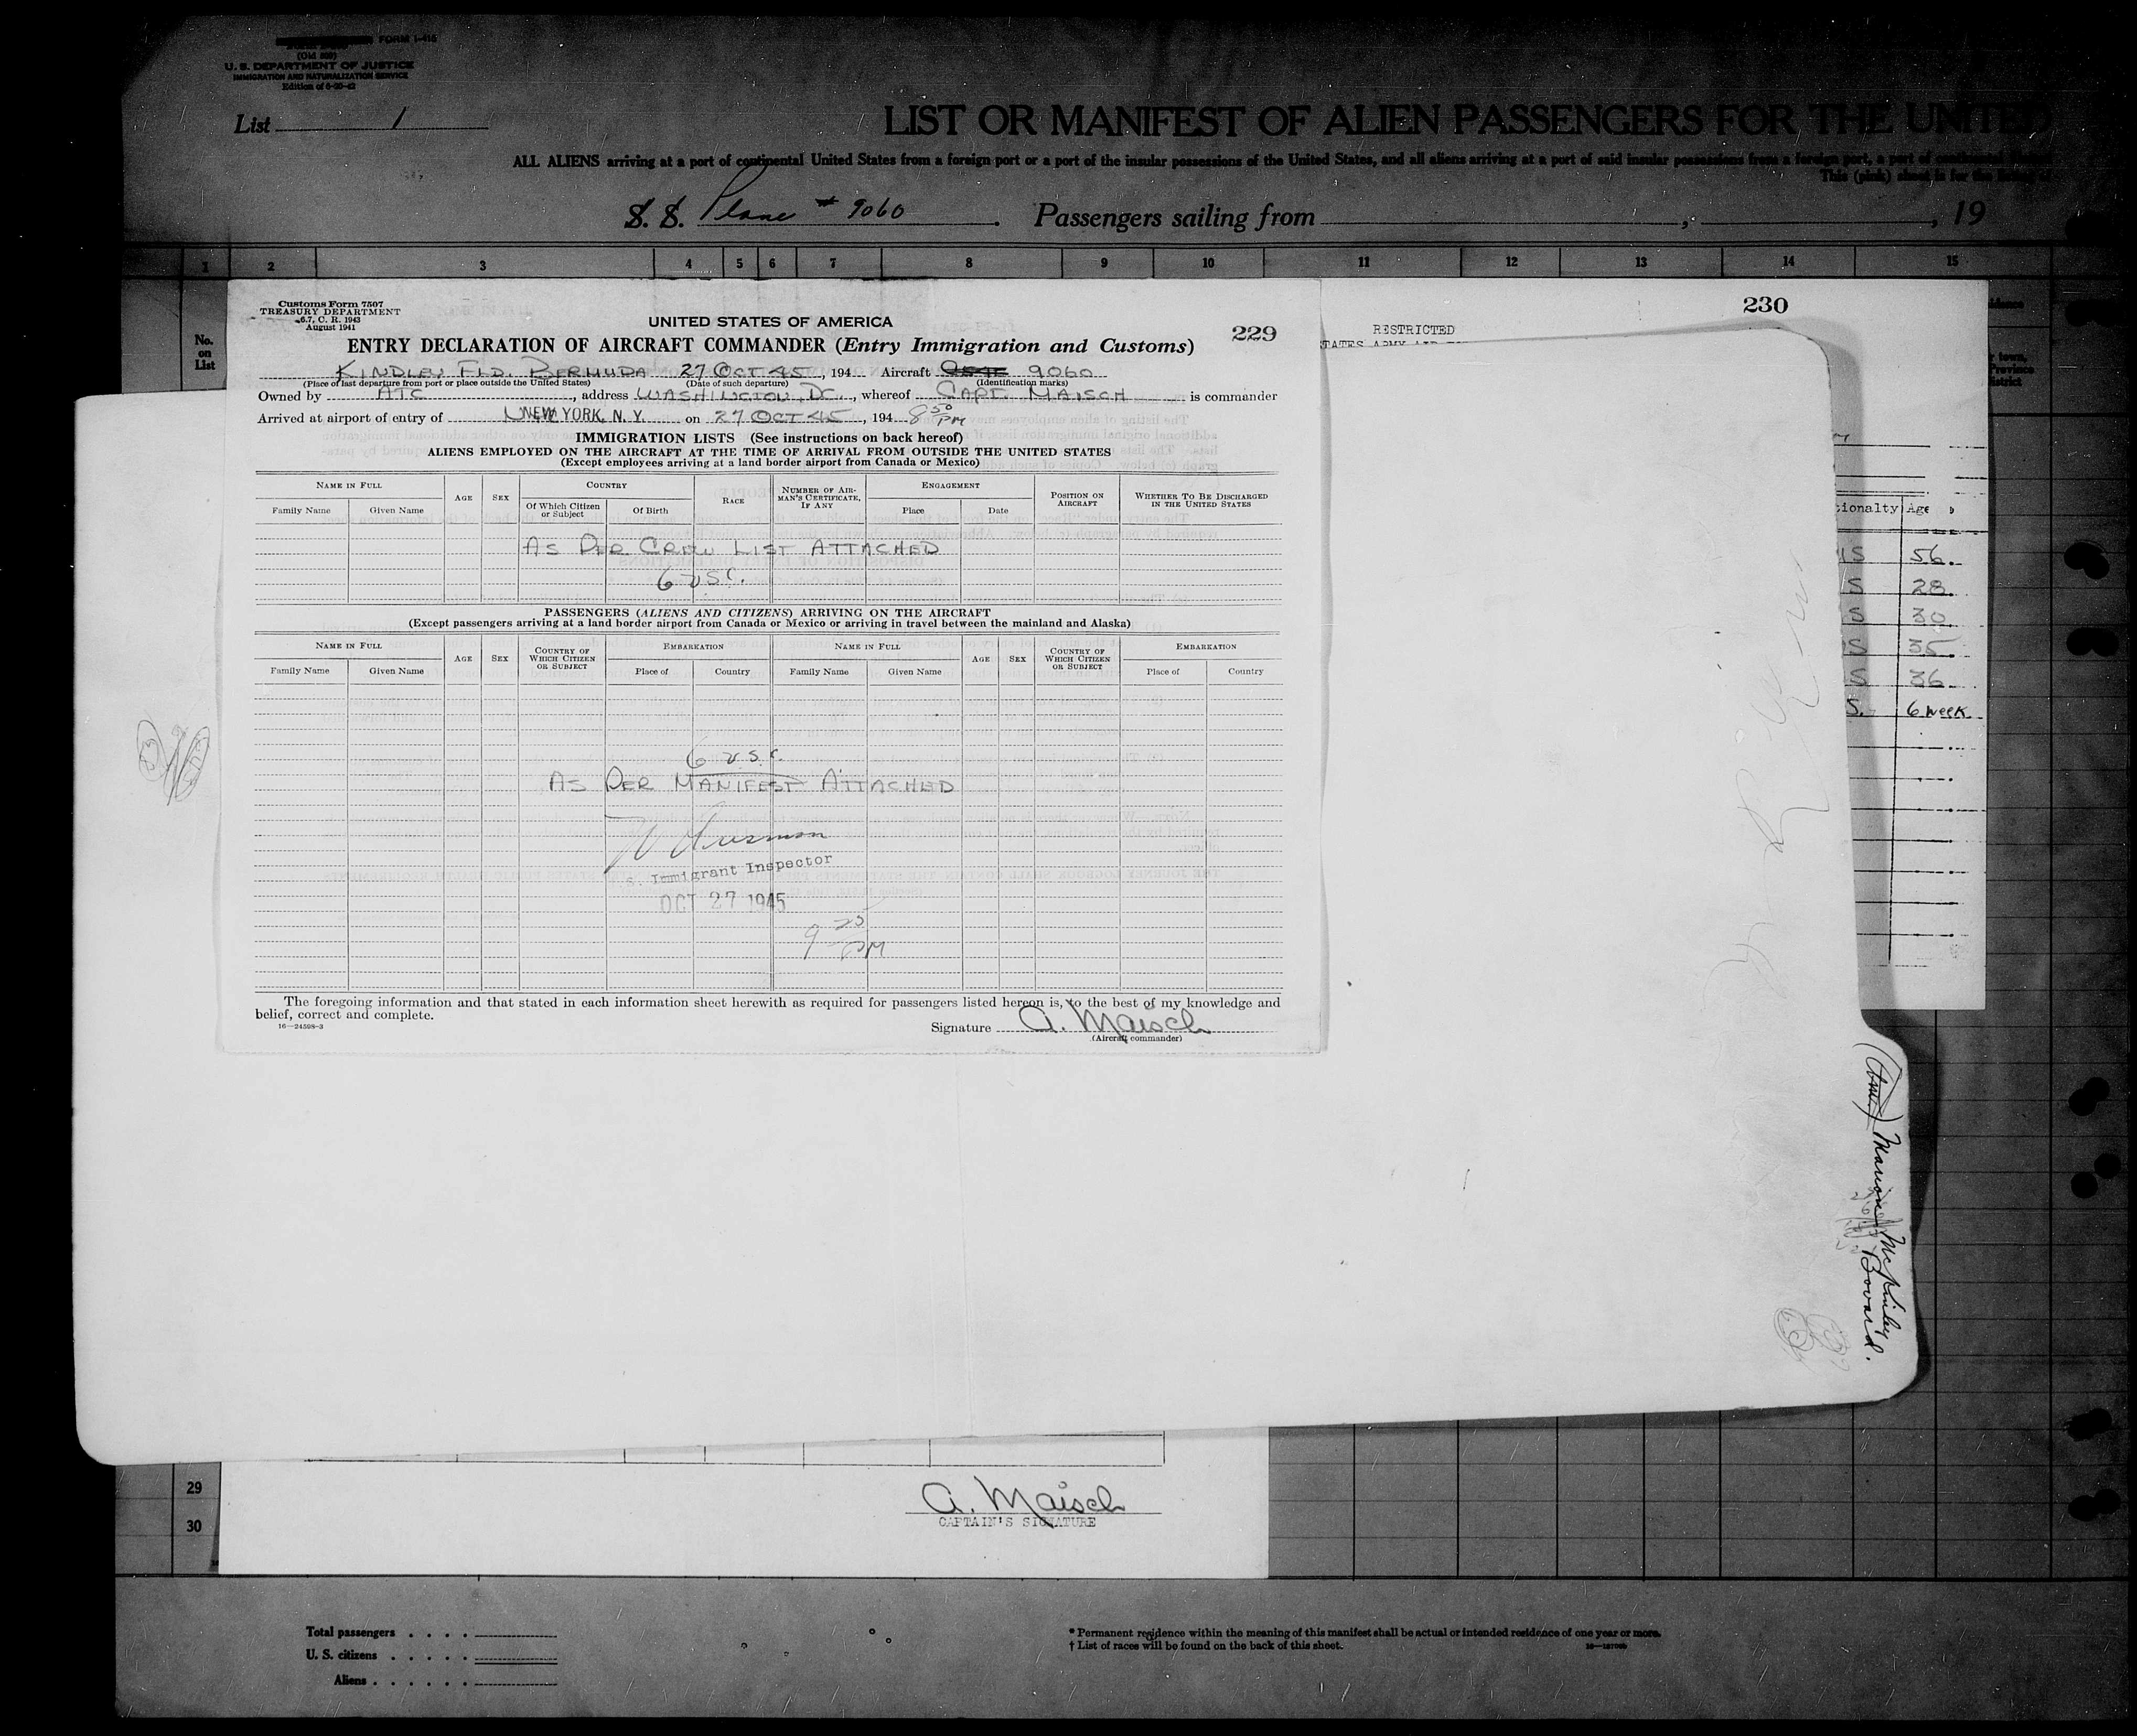 FORM I-415
(Old 500)
U. S. DEPARTMENT OF JUSTICE
IMMIGRATION AND NATURALIZATION SERVICE
Edition of 6-20-42
List 1
LIST OR MANIFEST OF ALIEN PASSENGERS FOR THE UNITED
ALL ALIENS arriving at a port of continental United States from a foreign port or a port of the insular possessions of the United States, and all aliens arriving at a port of said insular possessions from a foreign port, a port of continental
This (pink) sheet is for the listing of
S. S. Plane # 9060. Passengers sailing from , , 19
1 2 3 4 5 6 7 8 9 10 11 12 13 14 15
No. on List
Customs Form 7507
TREASURY DEPARTMENT
6.7, C. R. 1943
August 1941
UNITED STATES OF AMERICA
229
ENTRY DECLARATION OF AIRCRAFT COMMANDER (Entry Immigration and Customs)
KINDLEY FLD. BERMUDA 27 OCT 45, 194 Aircraft 9060
(Place of last departure from port or place outside the United States) (Date of such departure) (Identification marks)
Owned by ATC, address WASHINGTON, DC., whereof CAPT. MAISCH is commander
Arrived at airport of entry of NEW YORK, N. Y. on 27 OCT 45, 194 8 50 PM
IMMIGRATION LISTS (See instructions on back hereof)
ALIENS EMPLOYED ON THE AIRCRAFT AT THE TIME OF ARRIVAL FROM OUTSIDE THE UNITED STATES
(Except employees arriving at a land border airport from Canada or Mexico)
NAME IN FULL AGE SEX COUNTRY RACE NUMBER OF AIRMAN'S CERTIFICATE, IF ANY ENGAGEMENT POSITION ON AIRCRAFT WHETHER TO BE DISCHARGED IN THE UNITED STATES
Family Name Given Name Of Which Citizen or Subject Of Birth Place Date
AS PER CREW LIST ATTACHED
6 USC.
PASSENGERS (ALIENS AND CITIZENS) ARRIVING ON THE AIRCRAFT
(Except passengers arriving at a land border airport from Canada or Mexico or arriving in travel between the mainland and Alaska)
NAME IN FULL AGE SEX COUNTRY OF WHICH CITIZEN OR SUBJECT EMBARKATION NAME IN FULL AGE SEX COUNTRY OF WHICH CITIZEN OR SUBJECT EMBARKATION
Family Name Given Name Place of Country Family Name Given Name Place of Country
6 U.S.C.
AS PER MANIFEST ATTACHED
S. Immigrant Inspector
OCT 27 1945
9 25 PM
The foregoing information and that stated in each information sheet herewith as required for passengers listed hereon is, to the best of my knowledge and
belief, correct and complete.
16—24598-3
Signature A. Maisch
(Aircraft commander)
230
RESTRICTED
STATES ARMY AIR
tionalty Age
US 56
S 28
S 30
S 35
S 36
S. 6 week
Marion McKinley
Bovard.
29
30
A. Maisch
CAPTAIN'S SIGNATURE
Total passengers
U. S. citizens
Aliens
* Permanent residence within the meaning of this manifest shall be actual or intended residence of one year or more.
† List of races will be found on the back of this sheet.